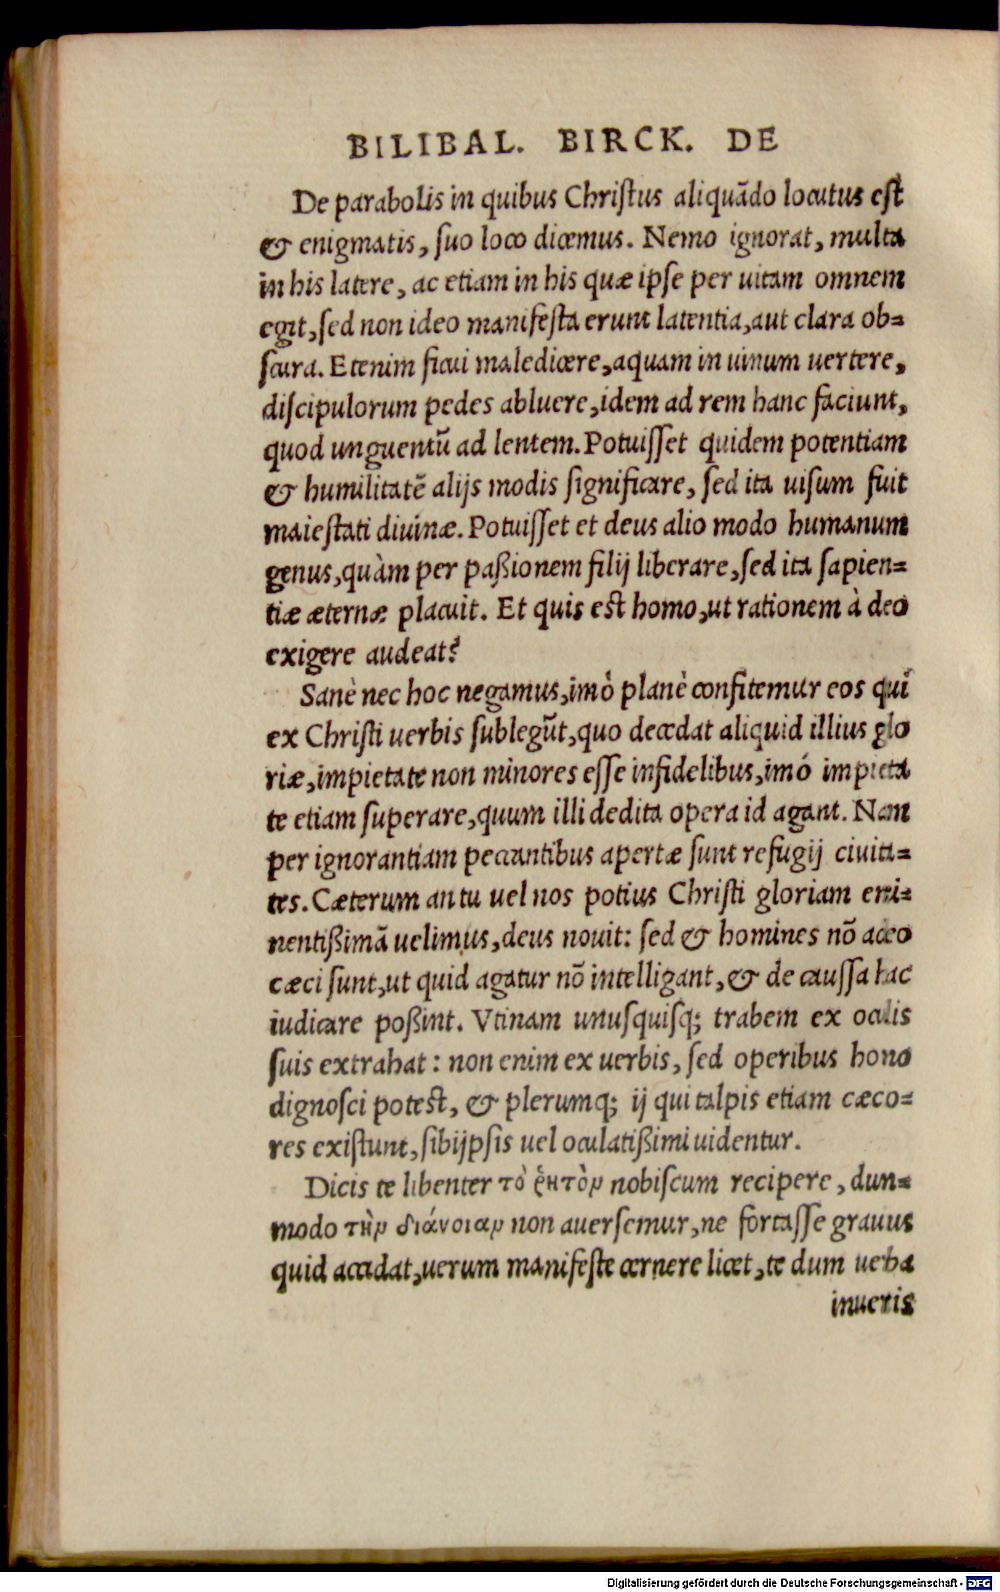 BILIBAL. BIRCK. DE
De parabolis in quibus Christus aliquādo locutus est
& enigmatis, suo loco dicemus. Nemo ignorat, multa
in his latere, ac etiam in his quæ ipse per uitam omnem
egit, sed non ideo manifesta erunt latentia, aut clara ob=
scura. Etenim ficui maledicere, aquam in uinum uertere,
discipulorum pedes abluere, idem ad rem hanc faciunt,
quod unguentū ad lentem. Potuisset quidem potentiam
& humilitatē alijs modis significare, sed ita uisum fuit
maiestati diuinæ. Potuisset et deus alio modo humanum
genus, quàm per paßionem filij liberare, sed ita sapien=
tiæ æternæ placuit. Et quis est homo, ut rationem à deo
exigere audeat?
Sanè nec hoc negamus, imò planè confitemur eos qui
ex Christi uerbis sublegūt, quo decedat aliquid illius glo
riæ, impietate non minores esse infidelibus, imó impieta
te etiam superare, quum illi dedita opera id agant. Nam
per ignorantiam peccantibus apertæ sunt refugij ciuita=
tes. Cæterum an tu uel nos potius Christi gloriam emi=
nentißimā uelimus, deus nouit: sed & homines nō adeo
cæci sunt, ut quid agatur nō intelligant, & de caussa hac
iudicare poßint. Vtinam unusquisq; trabem ex oculis
suis extrahat: non enim ex uerbis, sed operibus homo
dignosci potest, & plerumq; ij qui talpis etiam cæco=
res existunt, sibijpsis uel oculatißimi uidentur.
Dicis te libenter τὸ ῥητὸν nobiscum recipere, dum=
modo τὴν διάνοιαν non auersemur, ne fortasse grauius
quid accidat, uerum manifeste cernere licet, te dum uerba
inueris
Digitalisierung gefördert durch die Deutsche Forschungsgemeinschaft - DFG